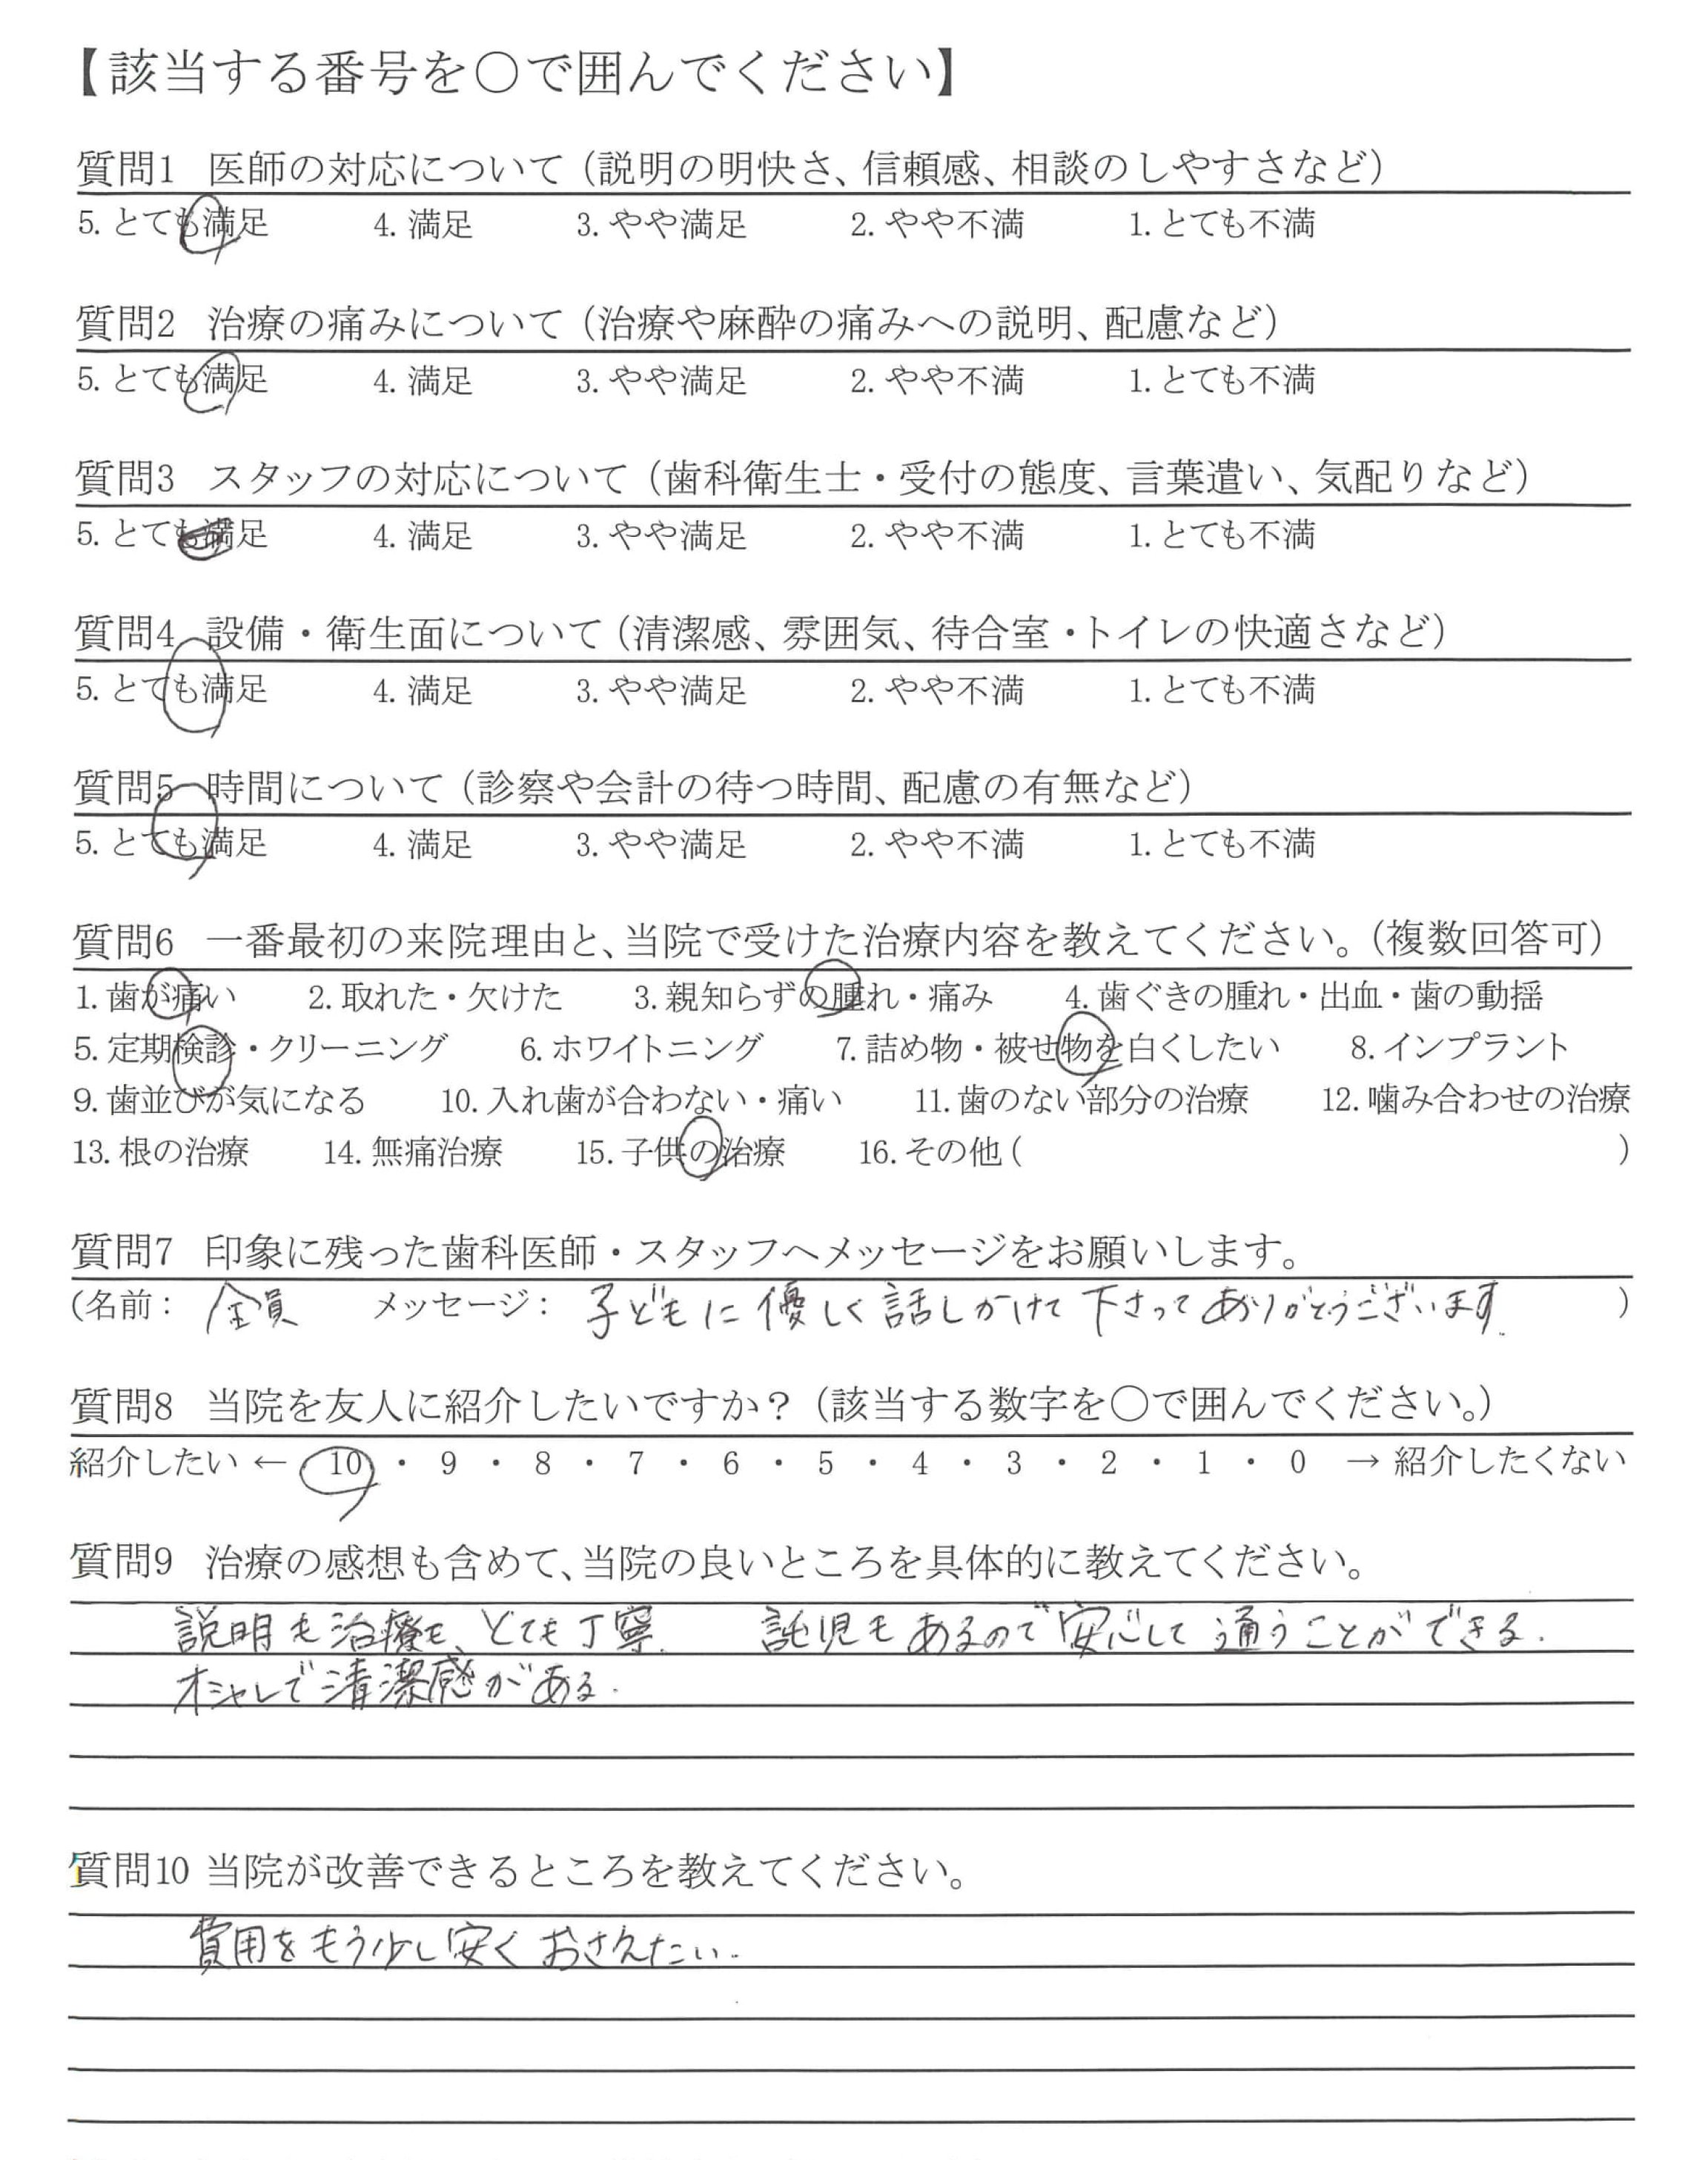 【該当する番号を〇で囲んでください】
質問1 医師の対応について（説明の明快さ、信頼感、相談のしやすさなど）
5. とても満足 4. 満足 3. やや満足 2. やや不満 1. とても不満
質問2 治療の痛みについて（治療や麻酔の痛みへの説明、配慮など）
5. とても満足 4. 満足 3. やや満足 2. やや不満 1. とても不満
質問3 スタッフの対応について（歯科衛生士・受付の態度、言葉遣い、気配りなど）
5. とても満足 4. 満足 3. やや満足 2. やや不満 1. とても不満
質問4 設備・衛生面について（清潔感、雰囲気、待合室・トイレの快適さなど）
5. とても満足 4. 満足 3. やや満足 2. やや不満 1. とても不満
質問5 時間について（診察や会計の待つ時間、配慮の有無など）
5. とても満足 4. 満足 3. やや満足 2. やや不満 1. とても不満
質問6 一番最初の来院理由と、当院で受けた治療内容を教えてください。（複数回答可）
1. 歯が痛い 2. 取れた・欠けた 3. 親知らずの腫れ・痛み 4. 歯ぐきの腫れ・出血・歯の動揺
5. 定期検診・クリーニング 6. ホワイトニング 7. 詰め物・被せ物を白くしたい 8. インプラント
9. 歯並びが気になる 10. 入れ歯が合わない・痛い 11. 歯のない部分の治療 12. 噛み合わせの治療
13. 根の治療 14. 無痛治療 15. 子供の治療 16. その他（ ）
質問7 印象に残った歯科医師・スタッフへメッセージをお願いします。
（名前： 全員 メッセージ： 子どもに優しく話しかけて下さってありがとうございます. ）
質問8 当院を友人に紹介したいですか？（該当する数字を〇で囲んでください。）
紹介したい ← 10 ・ 9 ・ 8 ・ 7 ・ 6 ・ 5 ・ 4 ・ 3 ・ 2 ・ 1 ・ 0 → 紹介したくない
質問9 治療の感想も含めて、当院の良いところを具体的に教えてください。
説明も治療も、とても丁寧. 託児もあるので安心して通うことができる.
オシャレで清潔感がある.
質問10 当院が改善できるところを教えてください。
費用をもう少し安くおさえたい.